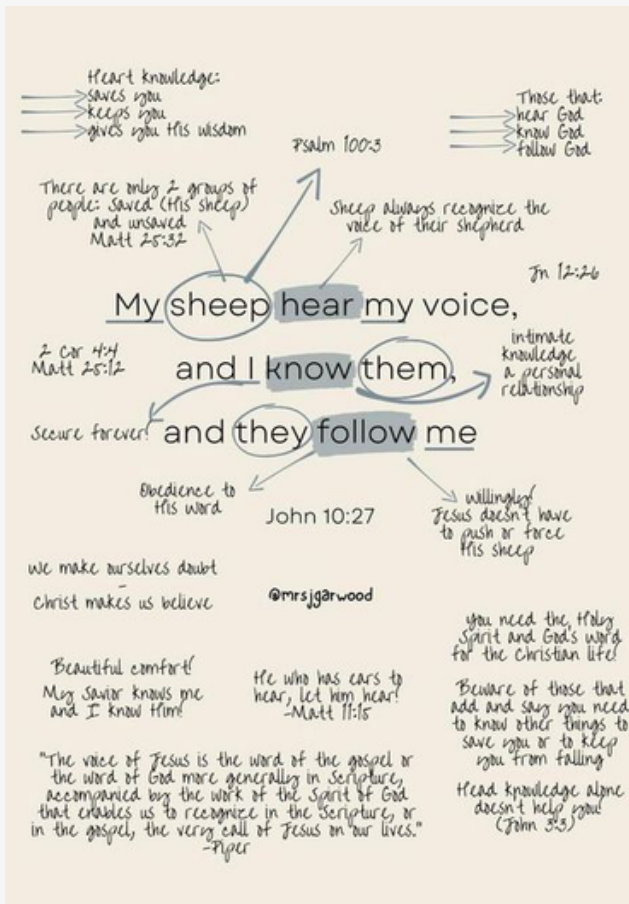 Heart knowledge:
saves you
keeps you
gives you His wisdom
Those that:
hear God
know God
follow God
Psalm 100:3
There are only 2 groups of
people: saved (His sheep)
and unsaved
Matt 25:32
Sheep always recognize the
voice of their shepherd
Jn 12:26
My sheep hear my voice,
2 Cor 4:4
Matt 25:12
and I know them,
intimate
knowledge
a personal
relationship
Secure forever!
and they follow me
Obedience to
His word
John 10:27
willingly!
Jesus doesn't have
to push or force
His sheep
we make ourselves doubt
-
Christ makes us believe
@mrsjgarwood
you need the Holy
Spirit and God's word
for the Christian life!
Beautiful comfort!
My Savior knows me
and I know Him!
He who has ears to
hear, let him hear!
-Matt 11:15
Beware of those that
add and say you need
to know other things to
save you or to keep
you from falling
Head knowledge alone
doesn't help you!
(John 3:3)
"The voice of Jesus is the word of the gospel or
the word of God more generally in Scripture,
accompanied by the work of the Spirit of God
that enables us to recognize in the Scripture, or
in the gospel, the very call of Jesus on our lives."
-Piper